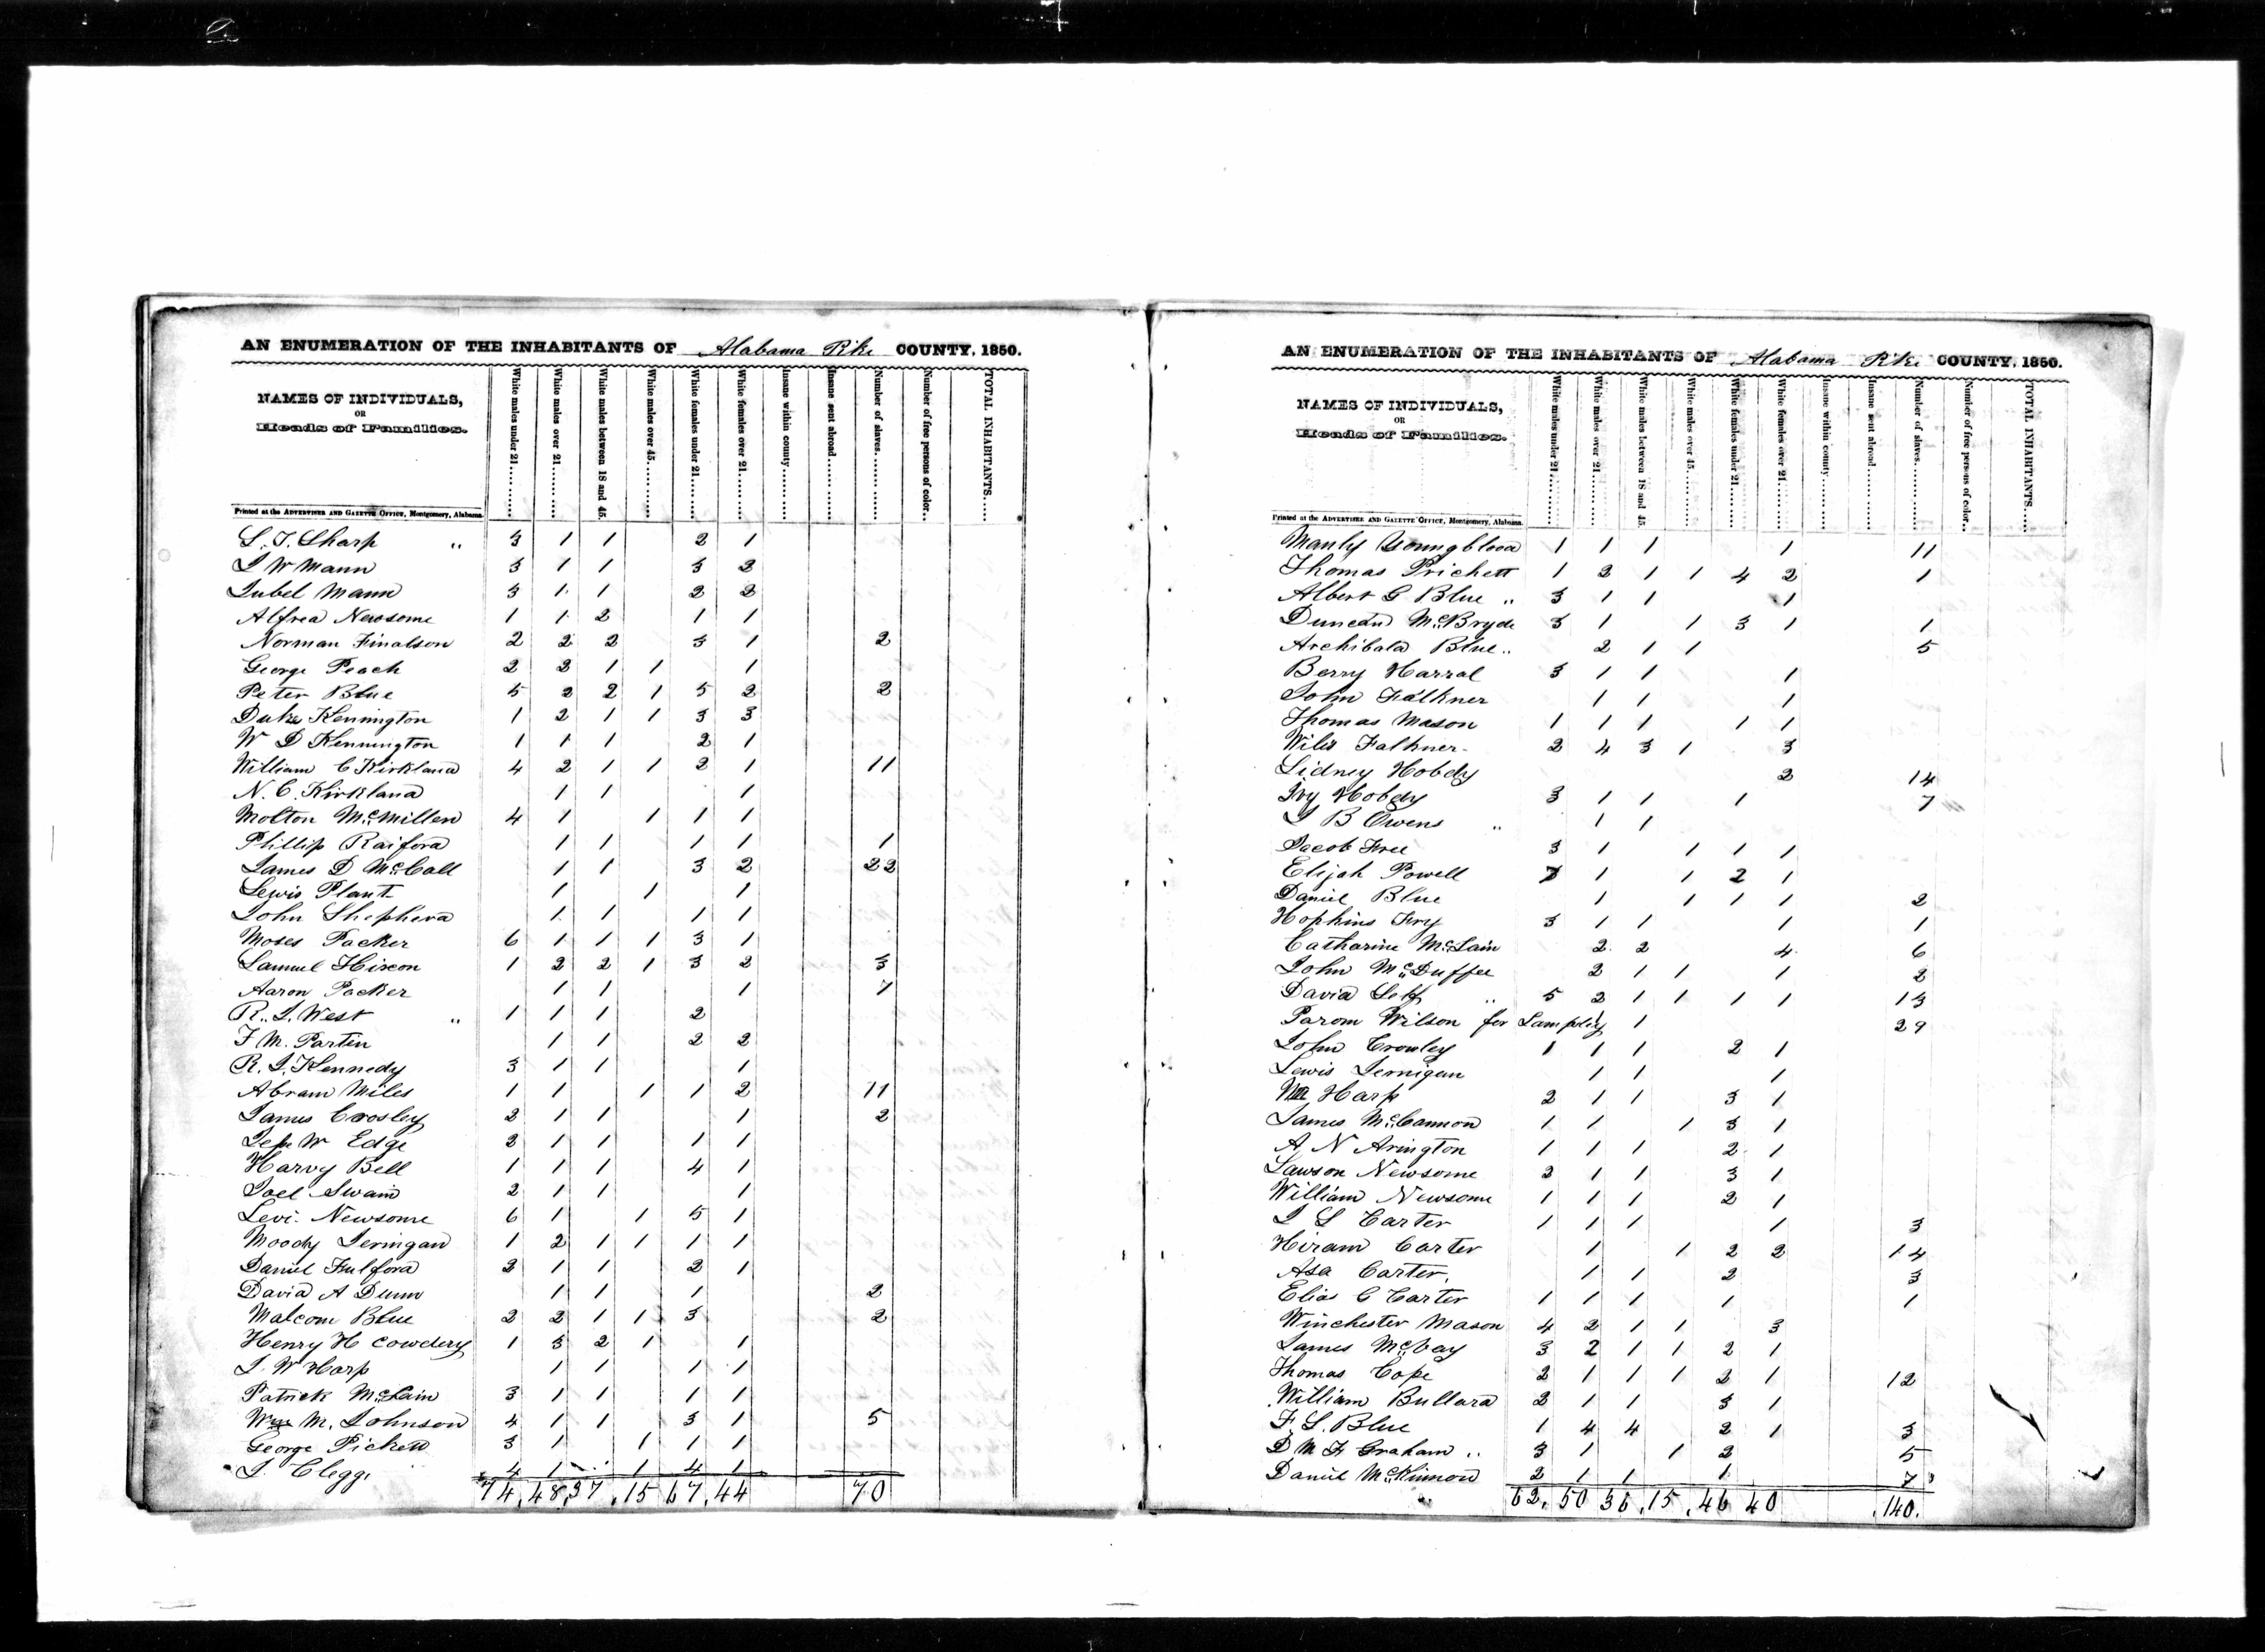 AN ENUMERATION OF THE INHABITANTS OF Alabama Pike COUNTY, 1850.
NAMES OF INDIVIDUALS,
OR
Heads of Families.
White males under 21
White males over 21
White males between 18 and 45
White males over 45
White females under 21
White females over 21
Insane within county
Insane sent abroad
Number of slaves
Number of free persons of color
TOTAL INHABITANTS
Printed at the ADVERTISER AND GAZETTE OFFICE, Montgomery, Alabama.
S. T. Sharp " 3 1 1 2 1
J W Mann 3 1 1 3 2
Jubel Mann 3 1 1 2 2
Alfred Newsome 1 1 2 1 1
Norman Finalson 2 2 2 3 1 2
George Peach 2 2 1 1 1
Peter Blue 5 2 2 1 5 2 2
Duke Kennington 1 2 1 1 3 3
W D Kennington 1 1 1 2 1
William C Kirkland 4 2 1 1 2 1 11
N. C. Kirkland 1 1 1
Molton McMillen 4 1 1 1 1
Phillip Raiford 1 1 1 1 1
James D McCall 1 1 3 2 22
Lewis Plant 1 1 1
John Shepherd 1 1 1 1
Moses Packer 6 1 1 1 3 1
Samuel Hixon 1 2 2 1 3 2 3
Aaron Packer 1 1 1 7
R. J. West " 1 1 1 2
F M. Partin 1 1 2 2
R. J. Kennedy 3 1 1 1
Abram Miles 1 1 1 1 2 11
James Crosley 2 1 1 1 2
W Edge 2 1 1 1 1
Harvy Bell 1 1 1 4 1
Joel Swain 2 1 1 1
Levi Newsome 6 1 1 5 1
Moody Jerningan 1 2 1 1 1 1
Daniel Fulford 2 1 1 2 1
David A Dunn 1 1 1 2
Malcom Blue 2 2 1 1 3 2
Henry H Cowdery 1 3 2 1 1
J. W Harp 1 1 1 1
Patrick McLain 3 1 1 1 1
Wm M. Johnson 4 1 1 3 1 5
George Pickett 3 1 1 1 1
J. Clegg 4 1 1 4 1
74 48 37 15 67 44 70
AN ENUMERATION OF THE INHABITANTS OF Alabama Pike COUNTY, 1850.
NAMES OF INDIVIDUALS,
OR
Heads of Families.
White males under 21
White males over 21
White males between 18 and 45
White males over 45
White females under 21
White females over 21
Insane within county
Insane sent abroad
Number of slaves
Number of free persons of color
TOTAL INHABITANTS
Printed at the ADVERTISER AND GAZETTE OFFICE, Montgomery, Alabama.
Manly Youngblood 1 1 1 1 11
Thomas Prichett 1 2 1 1 4 2 1
Albert G Blue " 3 1 1 1
Duncan McBryde 3 1 1 3 1 1
Archibald Blue " 2 1 1 5
Berry Harral 3 1 1 1
John Falkner 1 1 1
Thomas Mason 1 1 1 1 1
Wiley Falkner 2 4 3 1 3
Sidney Hobdy 2 14
Ivy Hobdy 3 1 1 1 7
J B Owens " 1 1
Jacob Free 3 1 1 1 1
Elijah Powell 3 1 1 2 1
Daniel Blue 1 1 1 1 2
Hopkins Fry 3 1 1 1 1
Catharine McLain 2 2 4 6
John McDuffee 2 1 1 1 2
David " 5 2 1 1 1 1 13
Parom Wilson for Lampley 1 29
John Crowley 1 1 1 2 1
Lewis Jernigan 1 1 1
Harp 2 1 1 3 1
James McCannon 1 1 1 3 1
A. N Arington 1 1 1 2 1
Lawson Newsome 2 1 1 3 1
William Newsome 1 1 1 2 1
J S Carter 1 1 1 1 3
Hiram Carter 1 1 2 2 14
Asa Carter 1 1 2 3
Elias C Carter 1 1 1 1 1
Winchester Mason 4 2 1 1 3
James McVay 3 2 1 1 2 1
Thomas Cope 2 1 1 1 2 1 12
William Bullard 2 1 1 3 1
F. S. Blue 1 4 4 2 1 3
D M F Graham " 3 1 1 2 5
Daniel McKinnon 2 1 1 1 7
62 50 36 15 46 40 140